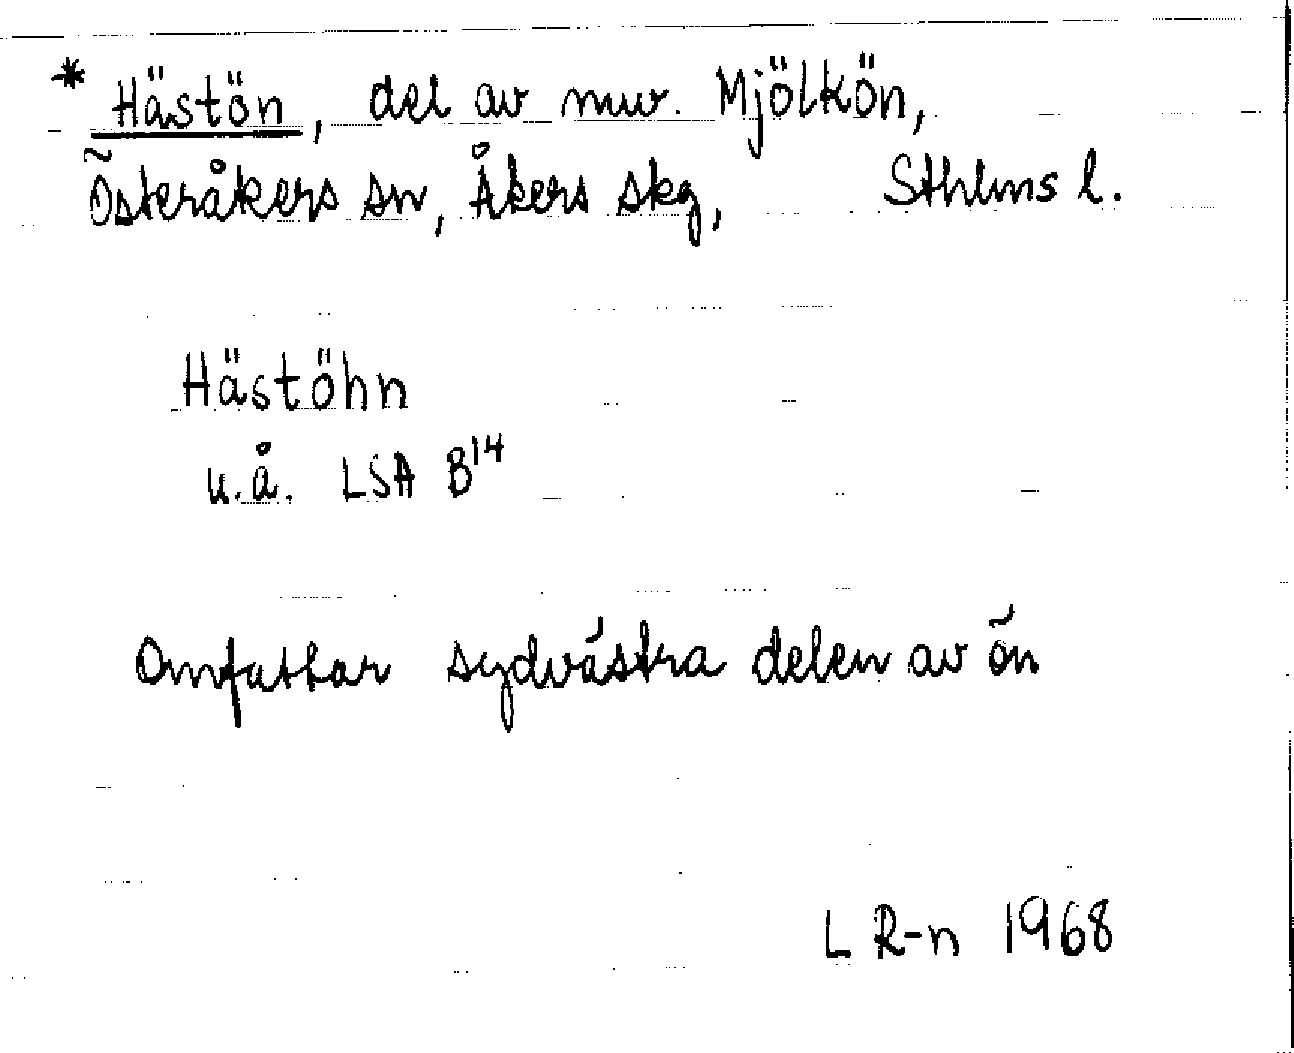 * Hästön, del av nuv. Mjölkön,
Österåkers sn, Åkers skg, Sthlms l.
Hästöhn
u.å. LSA B¹⁴
Omfattar sydvästra delen av ön
L R-n 1968